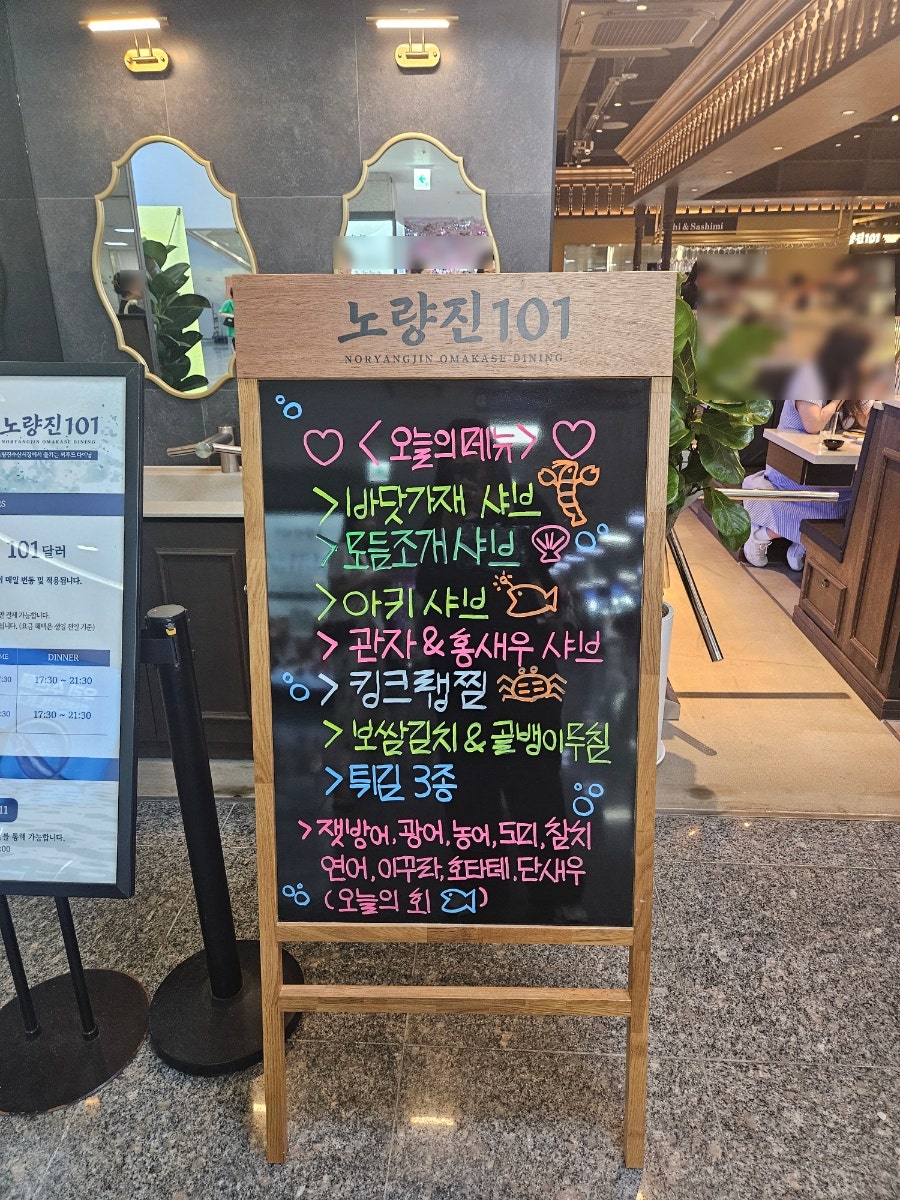 노량진101
NORYANGJIN OMAKASE DINING.
<오늘의메뉴>
>바닷가재 샤브
>모듬조개샤브
>아키 샤브
>관자&홍새우 샤브
>킹크랩찜
>보쌈김치&골뱅이무침
>튀김 3종
>잿방어,광어,농어,도미,참치
연어,이꾸라,호타테,단새우
(오늘의 회)
노량진101
NORYANGJIN OMAKASE DINING
101달러
매일 변동 및 적용됩니다.
DINNER
17:30 ~ 21:30
17:30 ~ 21:30
통해 가능합니다.
hi & Sashimi